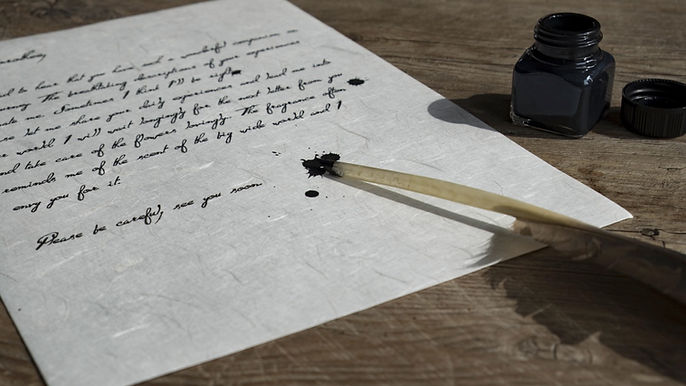 to hear that you have such a wonderful companion on
journey. The breathtaking descriptions of your experiences
me. Sometimes I think I'll be right
let me share your daily experiences and lead me into
world! I will wait longingly for the next letter from you
and take care of the flowers lovingly. The fragrance often
reminds me of the scent of the big wide world and I
envy you for it.
Please be careful, see you soon